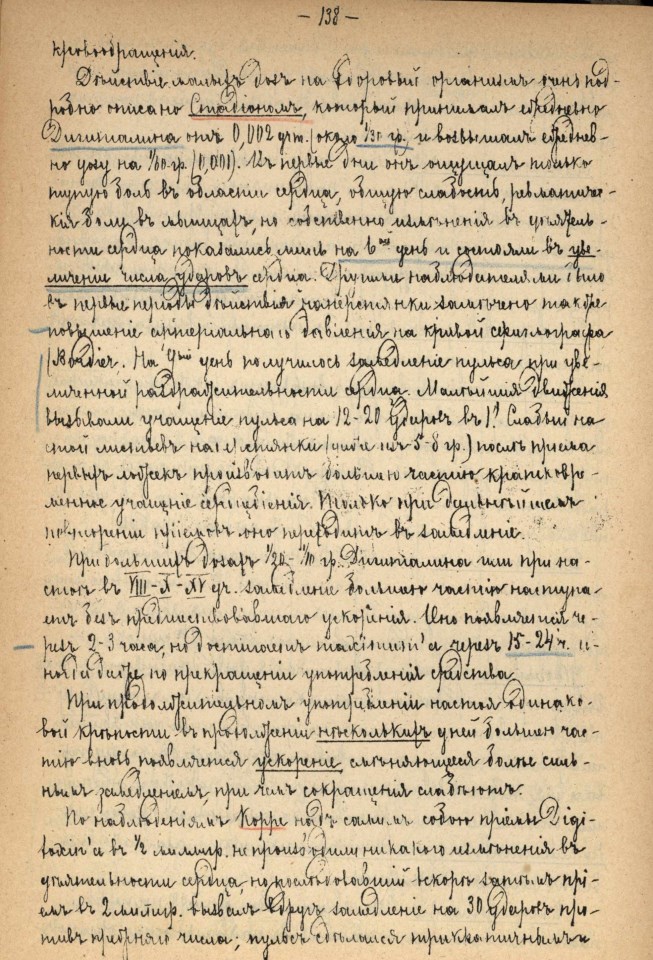 — 138 —
кровообращенія.
Дѣйствіе малыхъ дозъ на здоровый организмъ очень под-
робно описано Стадіономъ, который принималъ ежедневно
Дигиталина отъ 0,002 grm. (около 1/30 гр.) и возвышалъ ежеднев-
но дозу на 1/60 гр. (0,001). Въ первые дни онъ ощущалъ только
тупую боль въ области сердца, общую слабость, ревматичес-
кія боли въ мышцахъ, но собственно измѣненія въ дѣятель-
ности сердца показались лишь на 6ой день и состояли въ уве-
личеніи числа ударовъ сердца. Другими наблюдателями было
въ первые періоды дѣйствія наперстянки замѣчено также
повышеніе артеріальнаго давленія на кривой сфигмографа
На 9ый день получилось замедленіе пульса при уве-
личенной раздражительности сердца. Малѣйшія движенія
вызывали учащеніе пульса на 12-20 ударовъ въ 1'. Слабый на-
стой листьевъ наперстянки 5-8 гр.) послѣ пріема
первыхъ ложекъ производитъ большею частію кратковре-
менное учащеніе сердцебіенія. Только при дальнѣйшемъ
повтореніи пріемовъ оно переходитъ въ замедленіе.
При большихъ дозахъ 1/20-1/10 гр. Дигиталина или при на-
стоѣ въ VIII-X-XV gr. замедленіе большею частію наступа-
етъ безъ предшествовавшаго ускоренія. Оно появляется че-
резъ 2-3 часа, но достигаетъ maximum'а черезъ 15-24 ч. и-
ногда даже по прекращеніи употребленія средства.
При продолжительномъ употребленіи настоя одинако-
вой крѣпости въ продолженіи нѣсколькихъ дней большею час-
тію вновь появляется ускореніе, смѣняющееся болѣе силь-
нымъ замедленіемъ, при чемъ сокращенія слабѣютъ.
По наблюденіямъ Корре надъ самимъ собою пріемы Digi-
toxin'а въ 1/2 миллигр. не производили никакого измѣненія въ
дѣятельности сердца, но послѣдовавшій вскорѣ затѣмъ прі-
емъ въ 2 миллигр. вызвалъ вдругъ замедленіе на 30 ударовъ про-
тивъ прежняго числа; пульсъ сдѣлался дикротичнымъ и